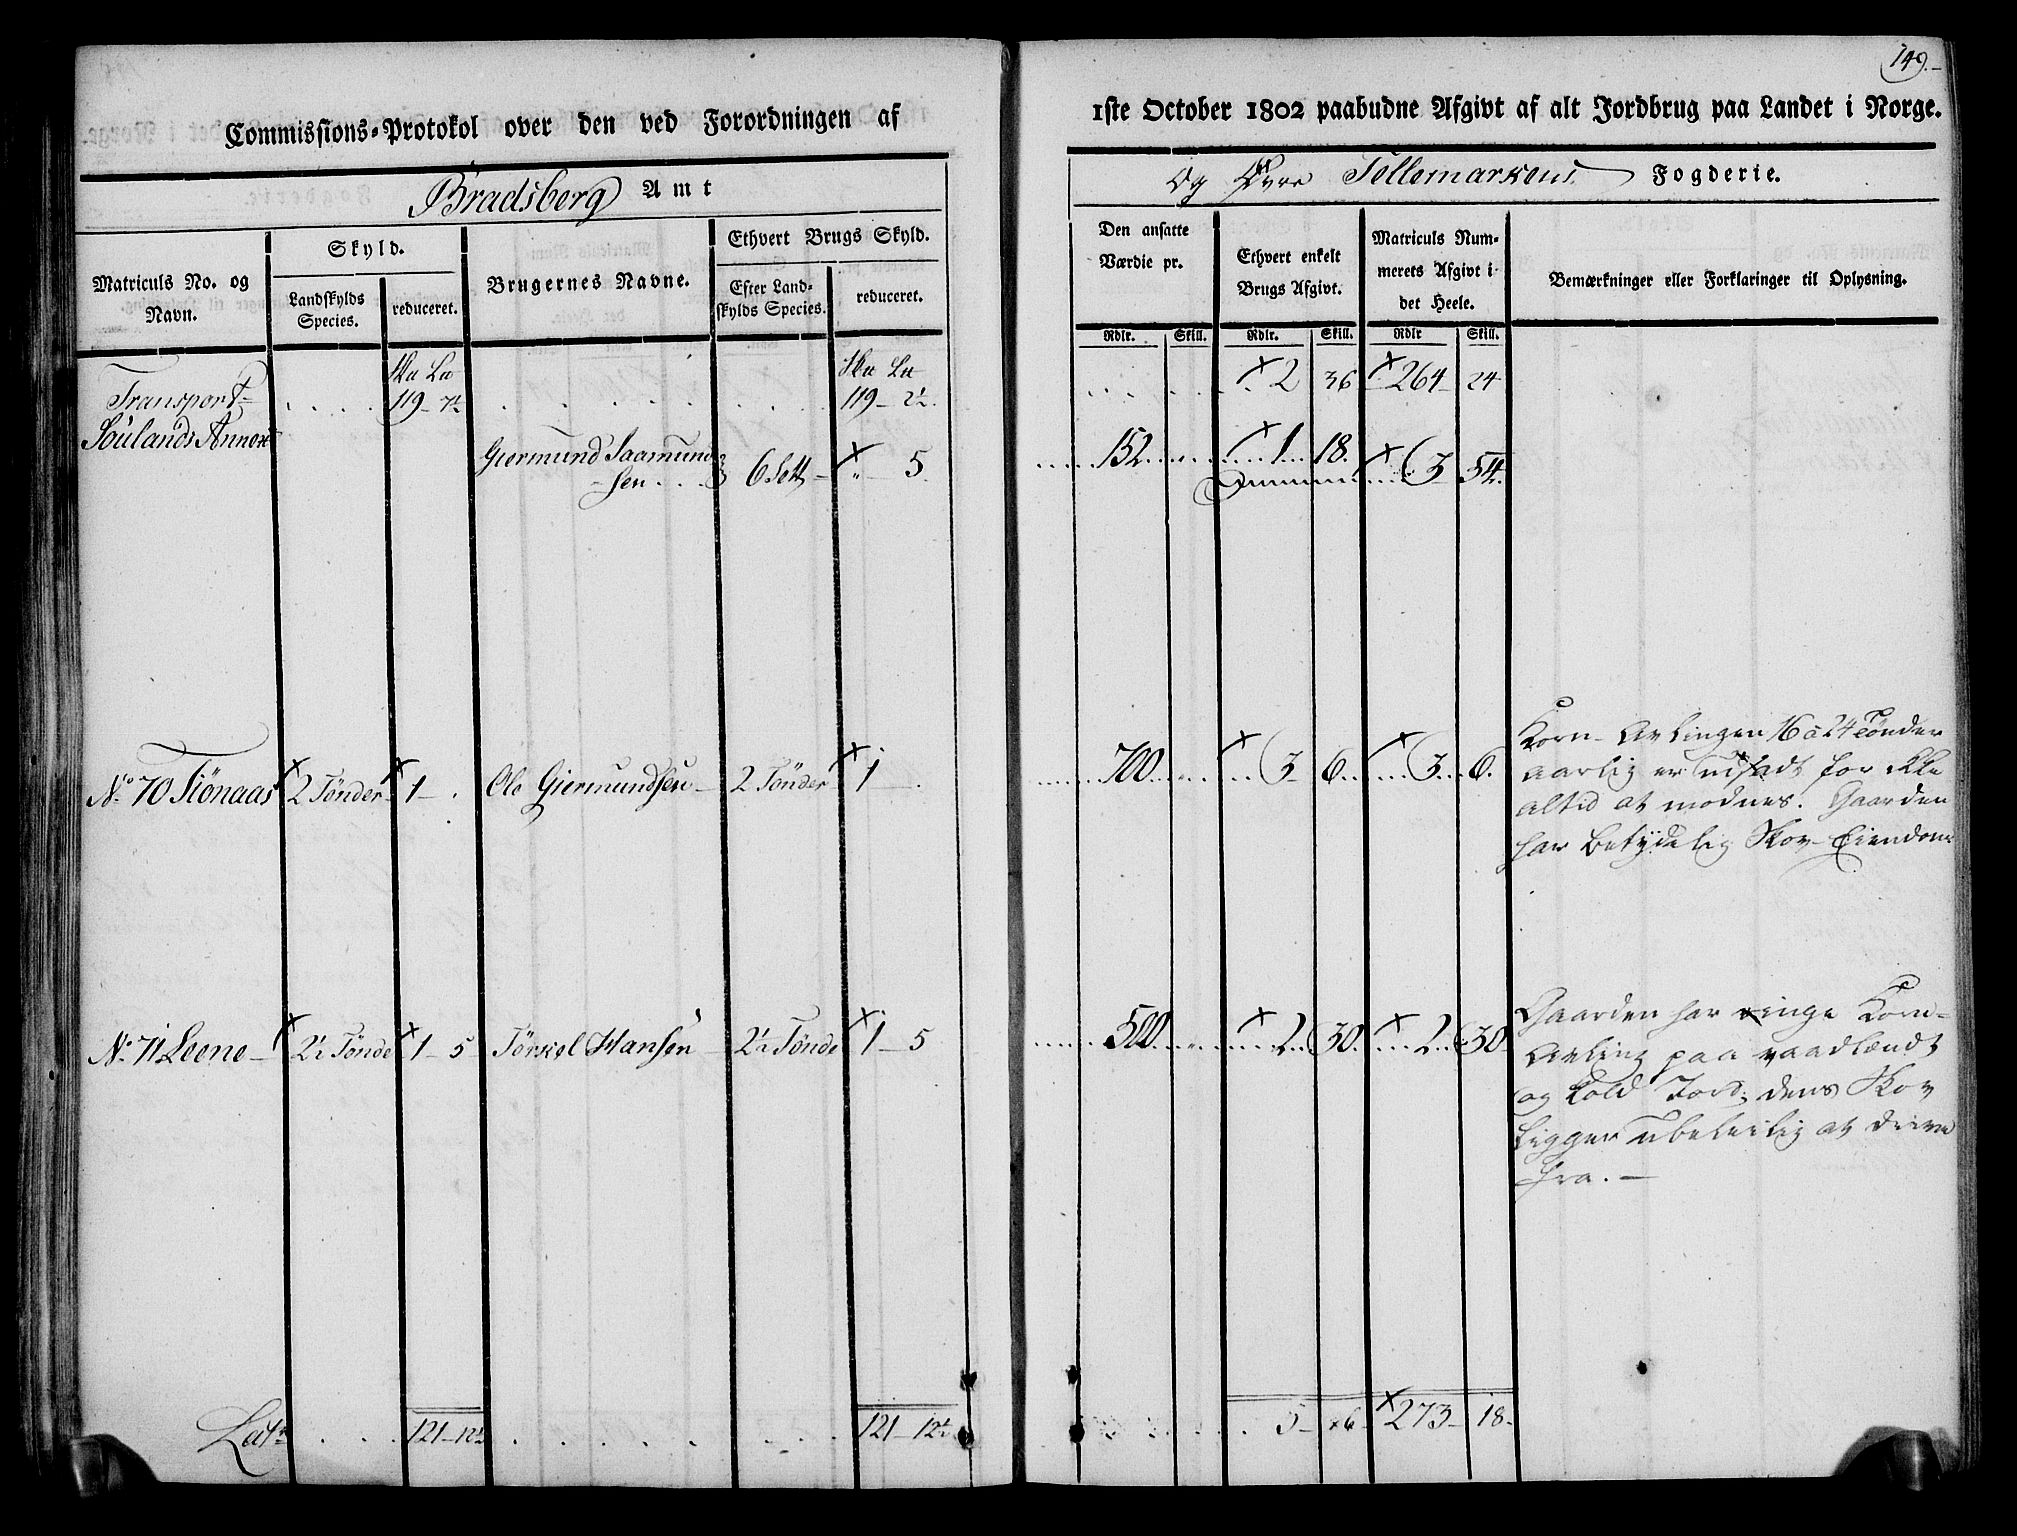 149.
Commissions-Protokol over den ved Forordningen af
1ste October 1802 paabudne Afgivt af alt Jordbrug paa Landet i Norge.
Bradsberg Amt
og Øvre Tellemarkens Fogderie.
Matriculs No. og Navn.
Skyld.
Landskylds Species.
reduceret.
Brugernes Navne.
Ethvert Brugs Skyld.
Efter Landskylds Species.
reduceret.
Den ansatte Værdie pr.
Ethvert enkelt Brugs Afgivt.
Matriculs Nummerets Afgivt i det Heele.
Bemærkninger eller Forklaringer til Oplysning.
Rdlr. Skill. Rdlr. Skill. Rdlr Skill.
Transport
119 - 7½ 119 - 2½ 2 36 264 - 24
Soulands Annex
Giermund Saamundsen 6 Sett - " 5. 152 1 18. 3 54.
No. 70 Tiönaas 2 Tönder 1 - Ole Giermundsen - 2 Tönder 1 - 700 3 - 6 3 6.
Korn-Avlingen 16 à 24 Tønder
aarlig er udsadt for ikke
altid at modnes. Gaarden
har betydelig Skov-Eiendom
No. 71 Leene - 2½ Tönde 1 - 5 Törkel Hansen - 2½ Tönde 1 - 5 500 2 30. 2 30
Gaarden har ringe Korn-
Avling paa vaadlændt
og kold Jord; dens Skov
ligger ubeleilig at drive
fra. -
Lat.
121 - 12½ 121 - 12½ 5 - 273 - 18.